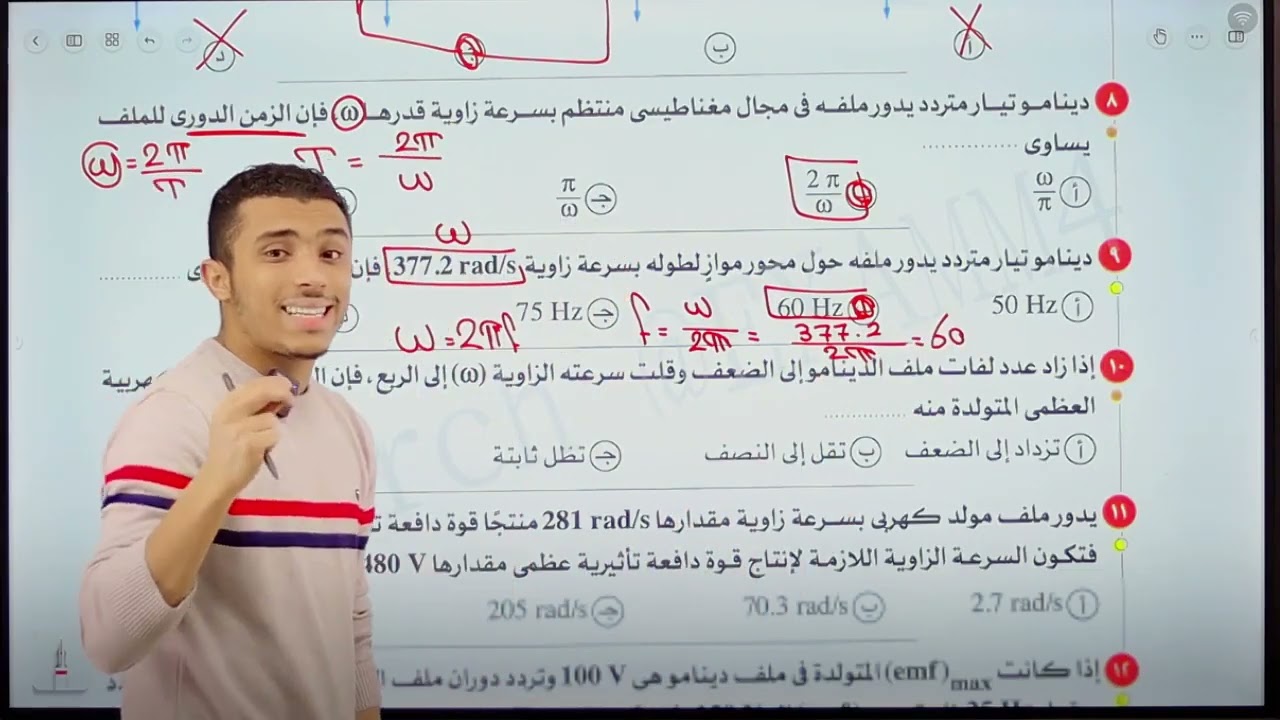 أ
ب
د
٨ دينامو تيار متردد يدور ملفه فى مجال مغناطيسى منتظم بسرعة زاوية قدرها ω، فإن الزمن الدورى للملف
يساوى ..............
ω = 2π/T T = 2π/ω
أ ω/π ب 2π/ω ج π/ω
ω
٩ دينامو تيار متردد يدور ملفه حول محور موازٍ لطوله بسرعة زاوية 377.2 rad/s، فإن ..............
أ 50 Hz ب 60 Hz ج 75 Hz
ω = 2πf f = ω/2π = 377.2/2π = 60
١٠ إذا زاد عدد لفات ملف الدينامو إلى الضعف وقلت سرعته الزاوية (ω) إلى الربع، فإن
العظمى المتولدة منه ..............
أ تزداد إلى الضعف ب تقل إلى النصف ج تظل ثابتة
١١ يدور ملف مولد كهربى بسرعة زاوية مقدارها 281 rad/s منتجًا قوة دافعة
فتكون السرعة الزاوية اللازمة لإنتاج قوة دافعة تأثيرية عظمى مقدارها 480 V
أ 2.7 rad/s ب 70.3 rad/s ج 205 rad/s
١٢ إذا كانت (emf)max المتولدة فى ملف دينامو هى 100 V وتردد دوران ملف